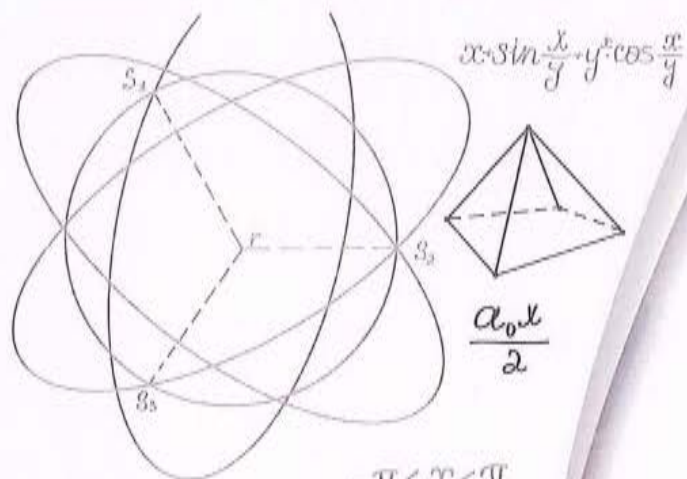 x·sin x/y + y²·cos x/y
S₁
r
S₂
a₀x/2
S₃
-π≤x≤π